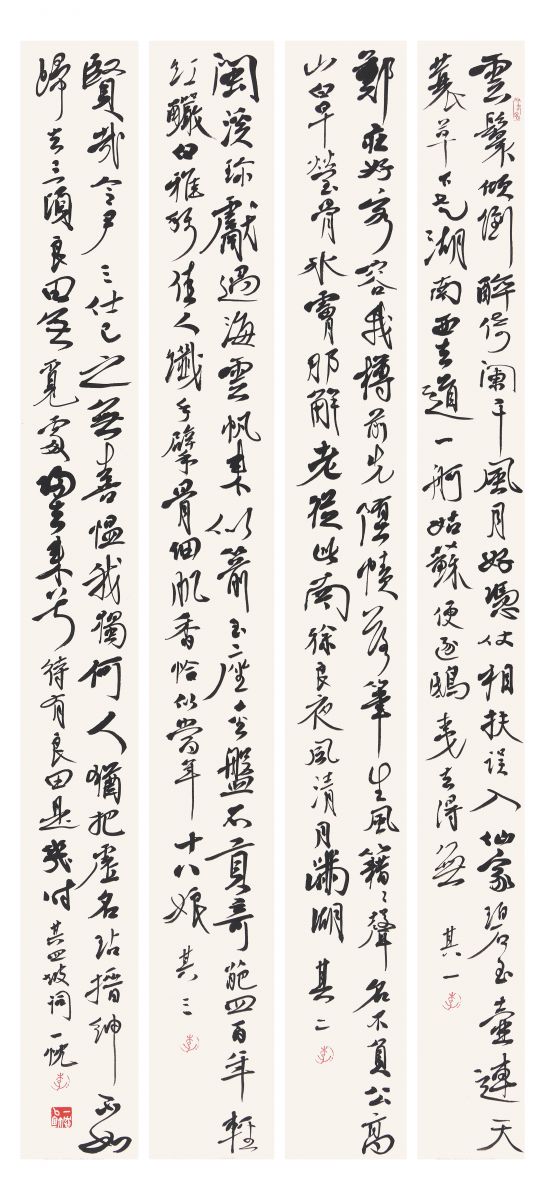 雲鬟傾倒醉倚闌干風月好憑仗相扶誤入仙家碧玉壺連天
衰草下走湖南西去道一舸姑蘇便逐鴟夷去得無 其一
鄭莊好客容我樽前先墮幘落筆生風籍〻聲名不負公高
山白早瑩骨冰膚那解老從此南徐良夜風清月滿湖 其二
閩溪珍獻過海雲帆來似箭玉座金盤不貢奇葩四百年輕
紅釀白雅稱佳人纖手擘骨細肌香恰似當年十八娘 其三
賢哉令尹三仕已之無喜慍我獨何人猶把虛名玷搢紳不如
歸去二頃良田無覓處歸去來兮待有良田是幾時 其四坡詞 一